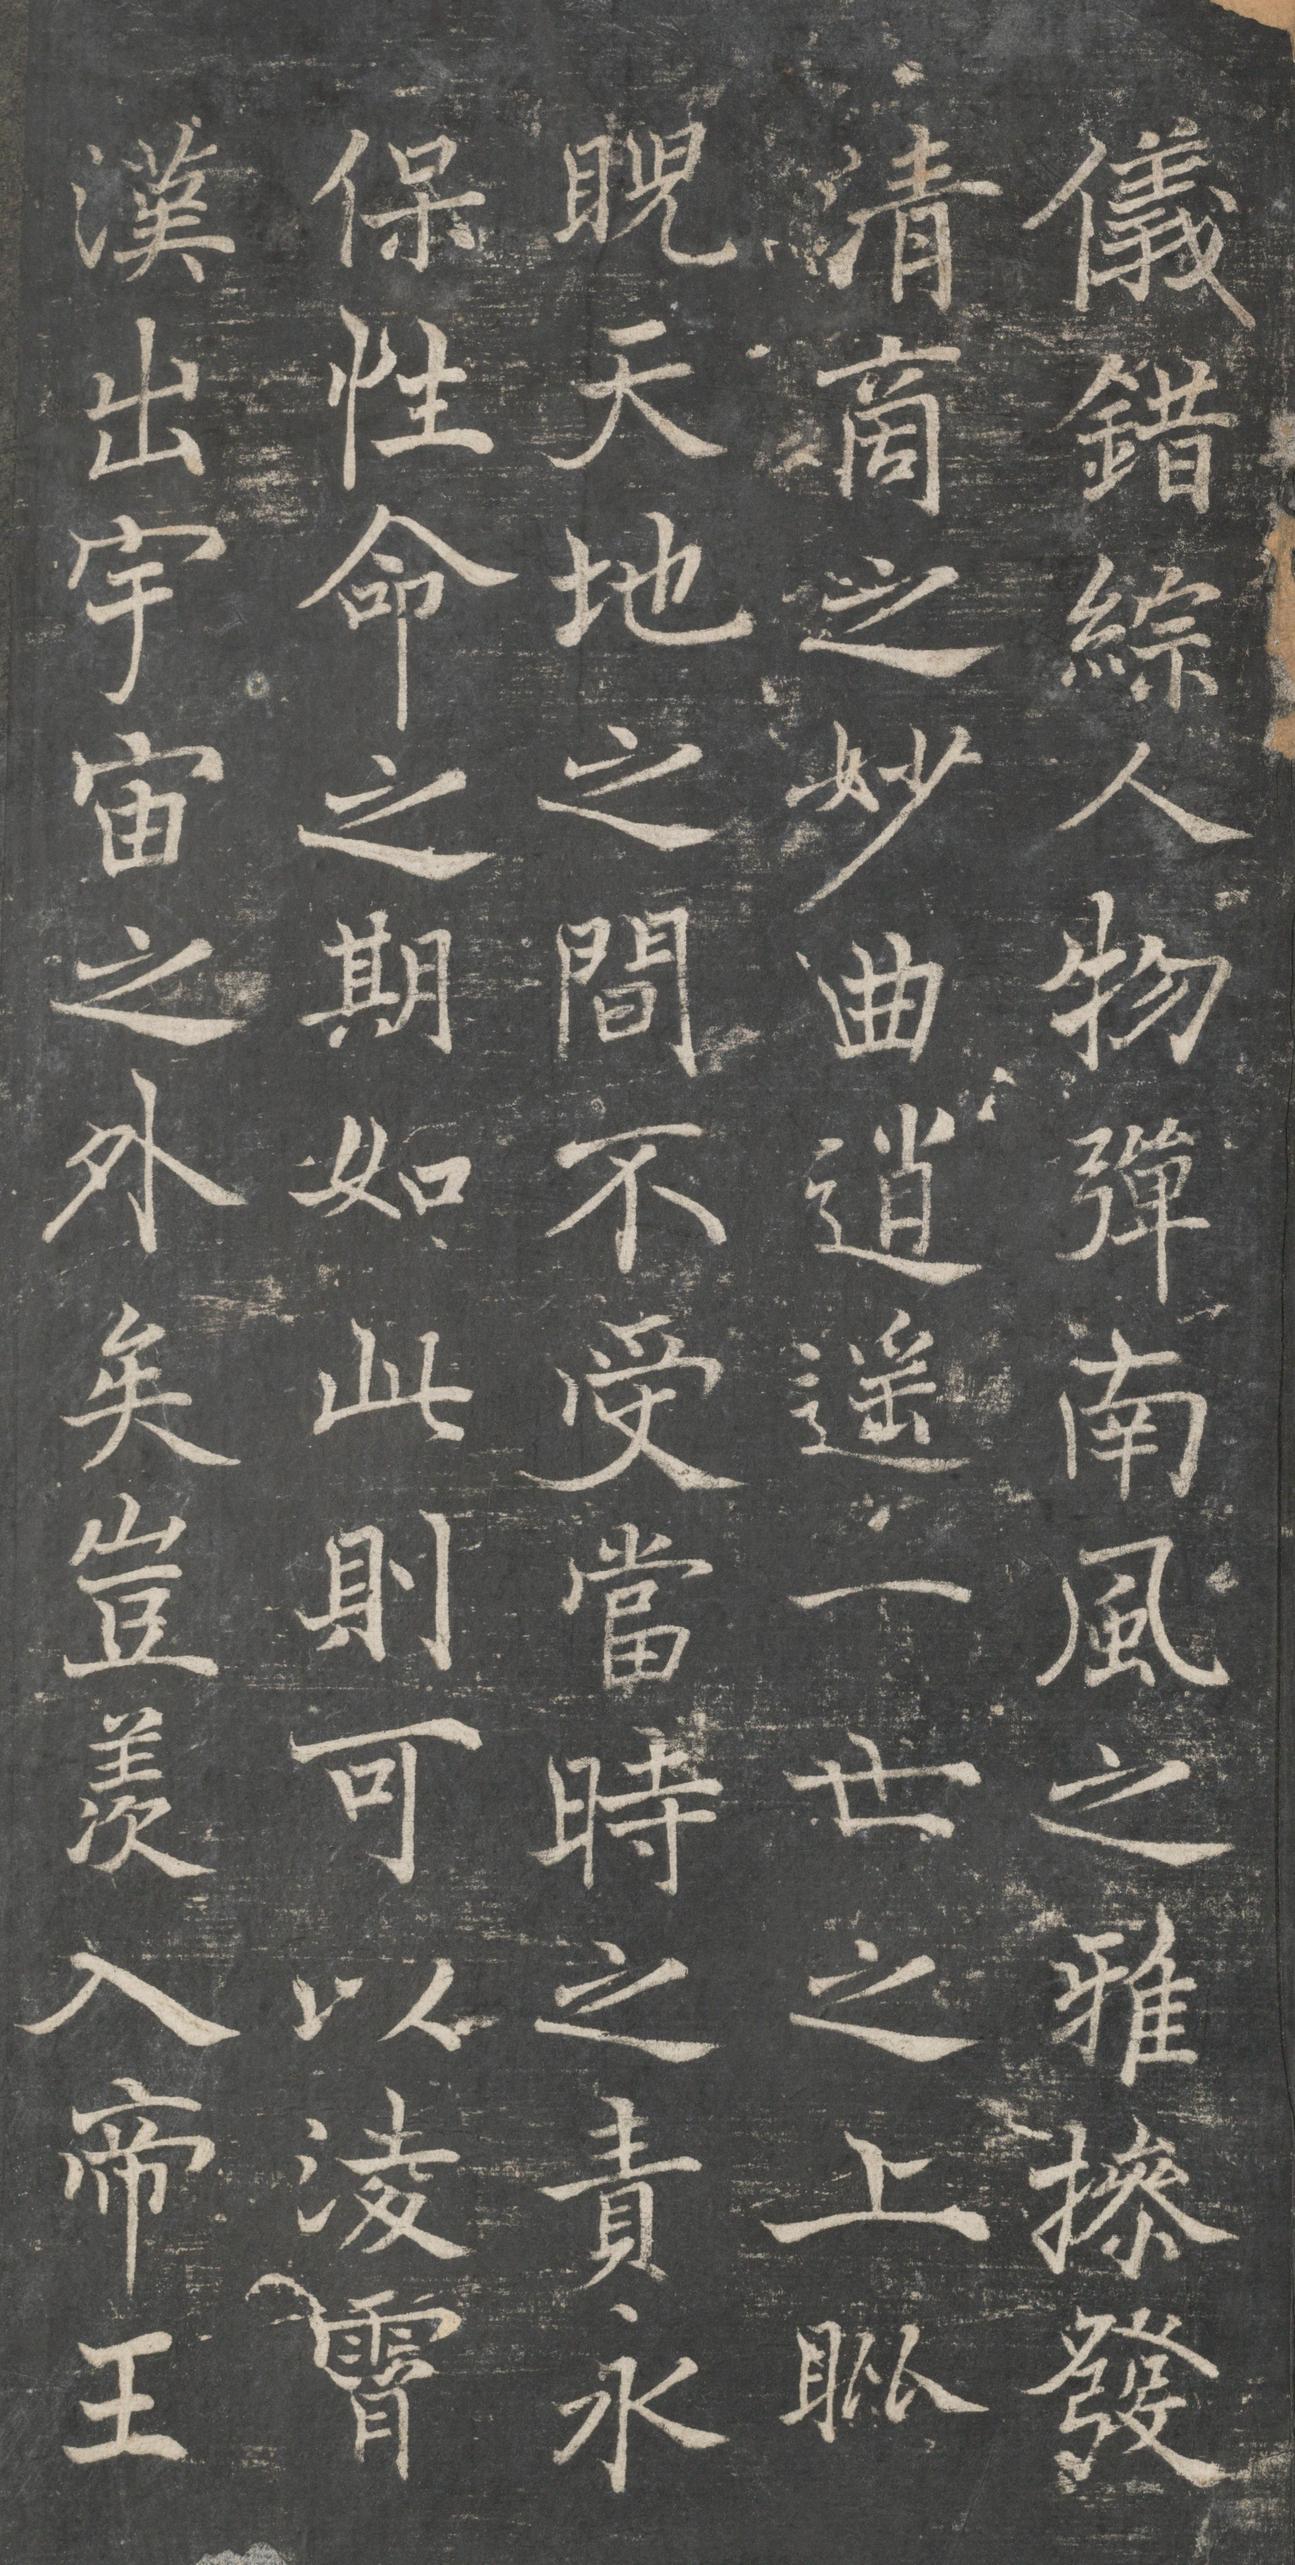 儀錯綜人物彈南風之雅操發
清商之妙曲逍遥一世之上
睨天地之間不受當時之責永
保性命之期如此則可以淩霄
漢出宇宙之外矣豈羨入帝王